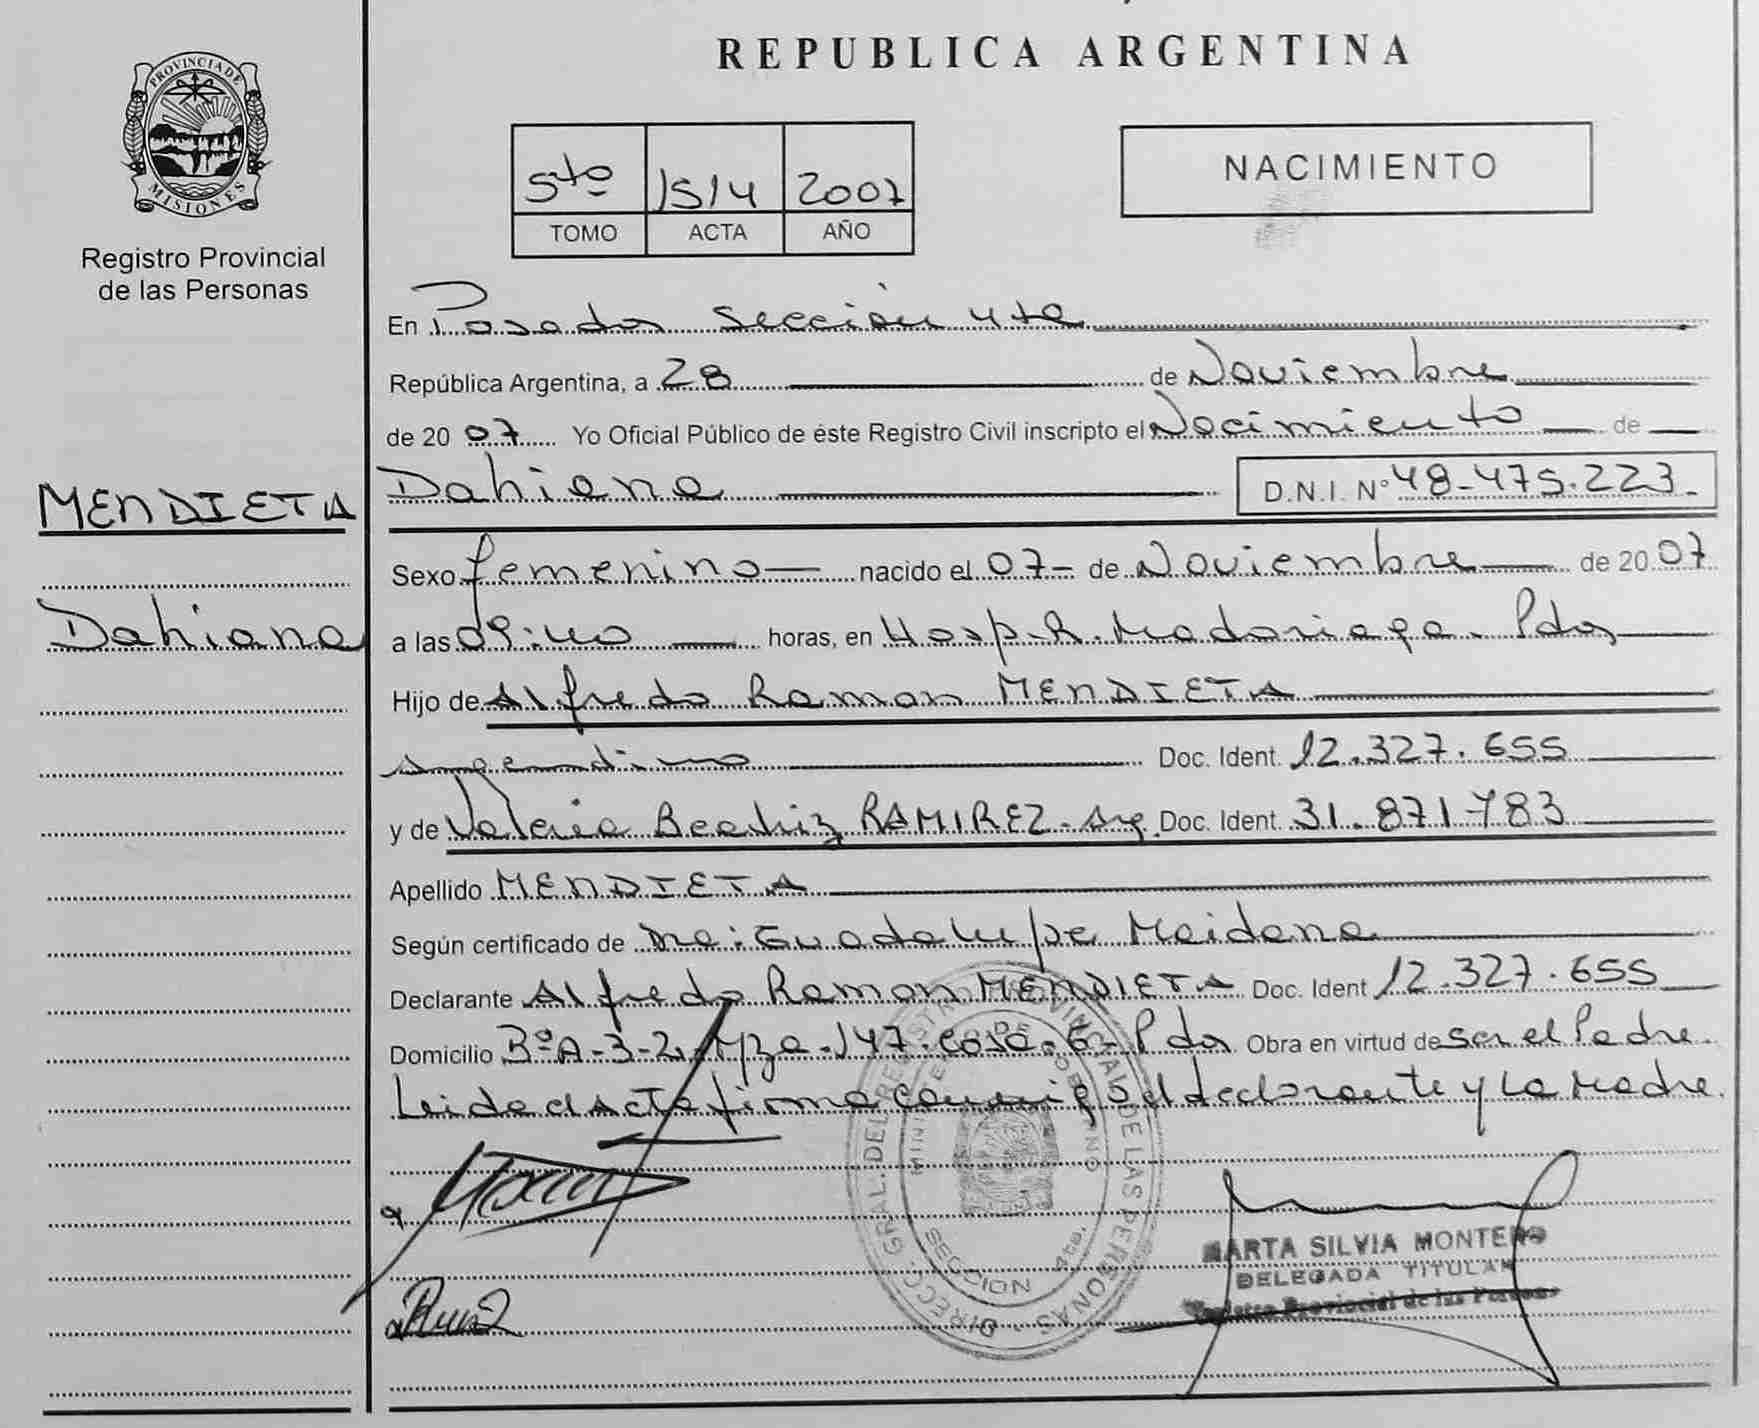 REPUBLICA ARGENTINA
PROVINCIA DE
MISIONES
Registro Provincial
de las Personas
5to 1514 2007
TOMO ACTA AÑO
NACIMIENTO
En Posadas sección 4ta
República Argentina, a 28 de Noviembre
de 20 07 Yo Oficial Público de éste Registro Civil inscripto el Nacimiento de
MENDIETA
Dahiana
Dahiana D.N.I. Nº 48-475.223
Sexo femenino nacido el 07 - de Noviembre de 20 07
a las 09:40 horas, en Hosp. R. Madariaga. Pdas
Hijo de Alfredo Ramon MENDIETA
argentino Doc. Ident. 12.327.655
y de Valeria Beatriz RAMIREZ - Arg. Doc. Ident. 31.871.783
Apellido MENDIETA
Según certificado de Dra: Guadalupe Maidana
Declarante Alfredo Ramon MENDIETA Doc. Ident 12.327.655
Domicilio Bº A-3-2. Mza. 147. casa. 6 - Pdas Obra en virtud de ser el Padre.
Leida el Acta firma conmigo el declarante y la Madre.
DIRECC. GRAL. DEL REGISTRO PROVINCIAL DE LAS PERSONAS
MINISTERIO DE GOBIERNO
SECCION 4ta.
MARTA SILVIA MONTERO
DELEGADA TITULAR
Registro Provincial de las Personas